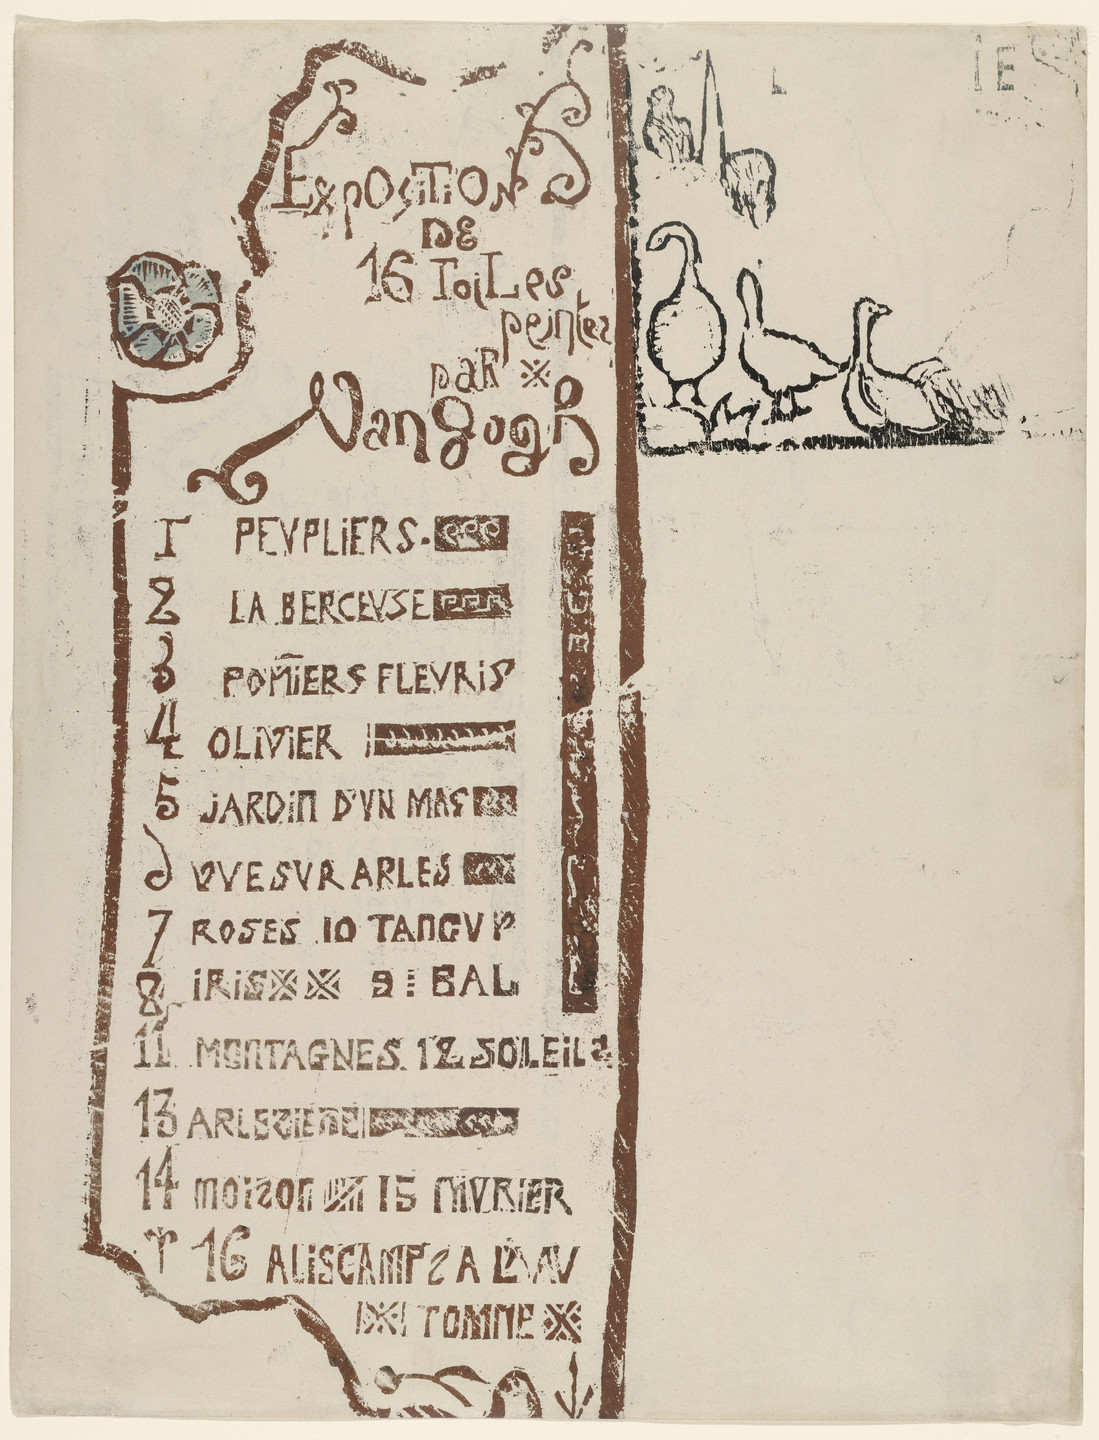 IE
ExPOSiTiON
DE
16 ToiLes
peintes
paR
Van gogh
1 PEVPLiERS.
2 LA BERCEVSE
3 POM̄iERS FLEVRiS
4 OLiViER
5 JARDiN D'VN MAS
6 VVE SVR ARLES
7 ROSES 10 TANGVY
8 iRiS 9 : BAL
11 MONTAGNES. 12 SOLEiLS
13 ARLEZiENE
14 MOiSON 15 MVRiER
16 ALiSCAMPS A L'AV
TOMNE